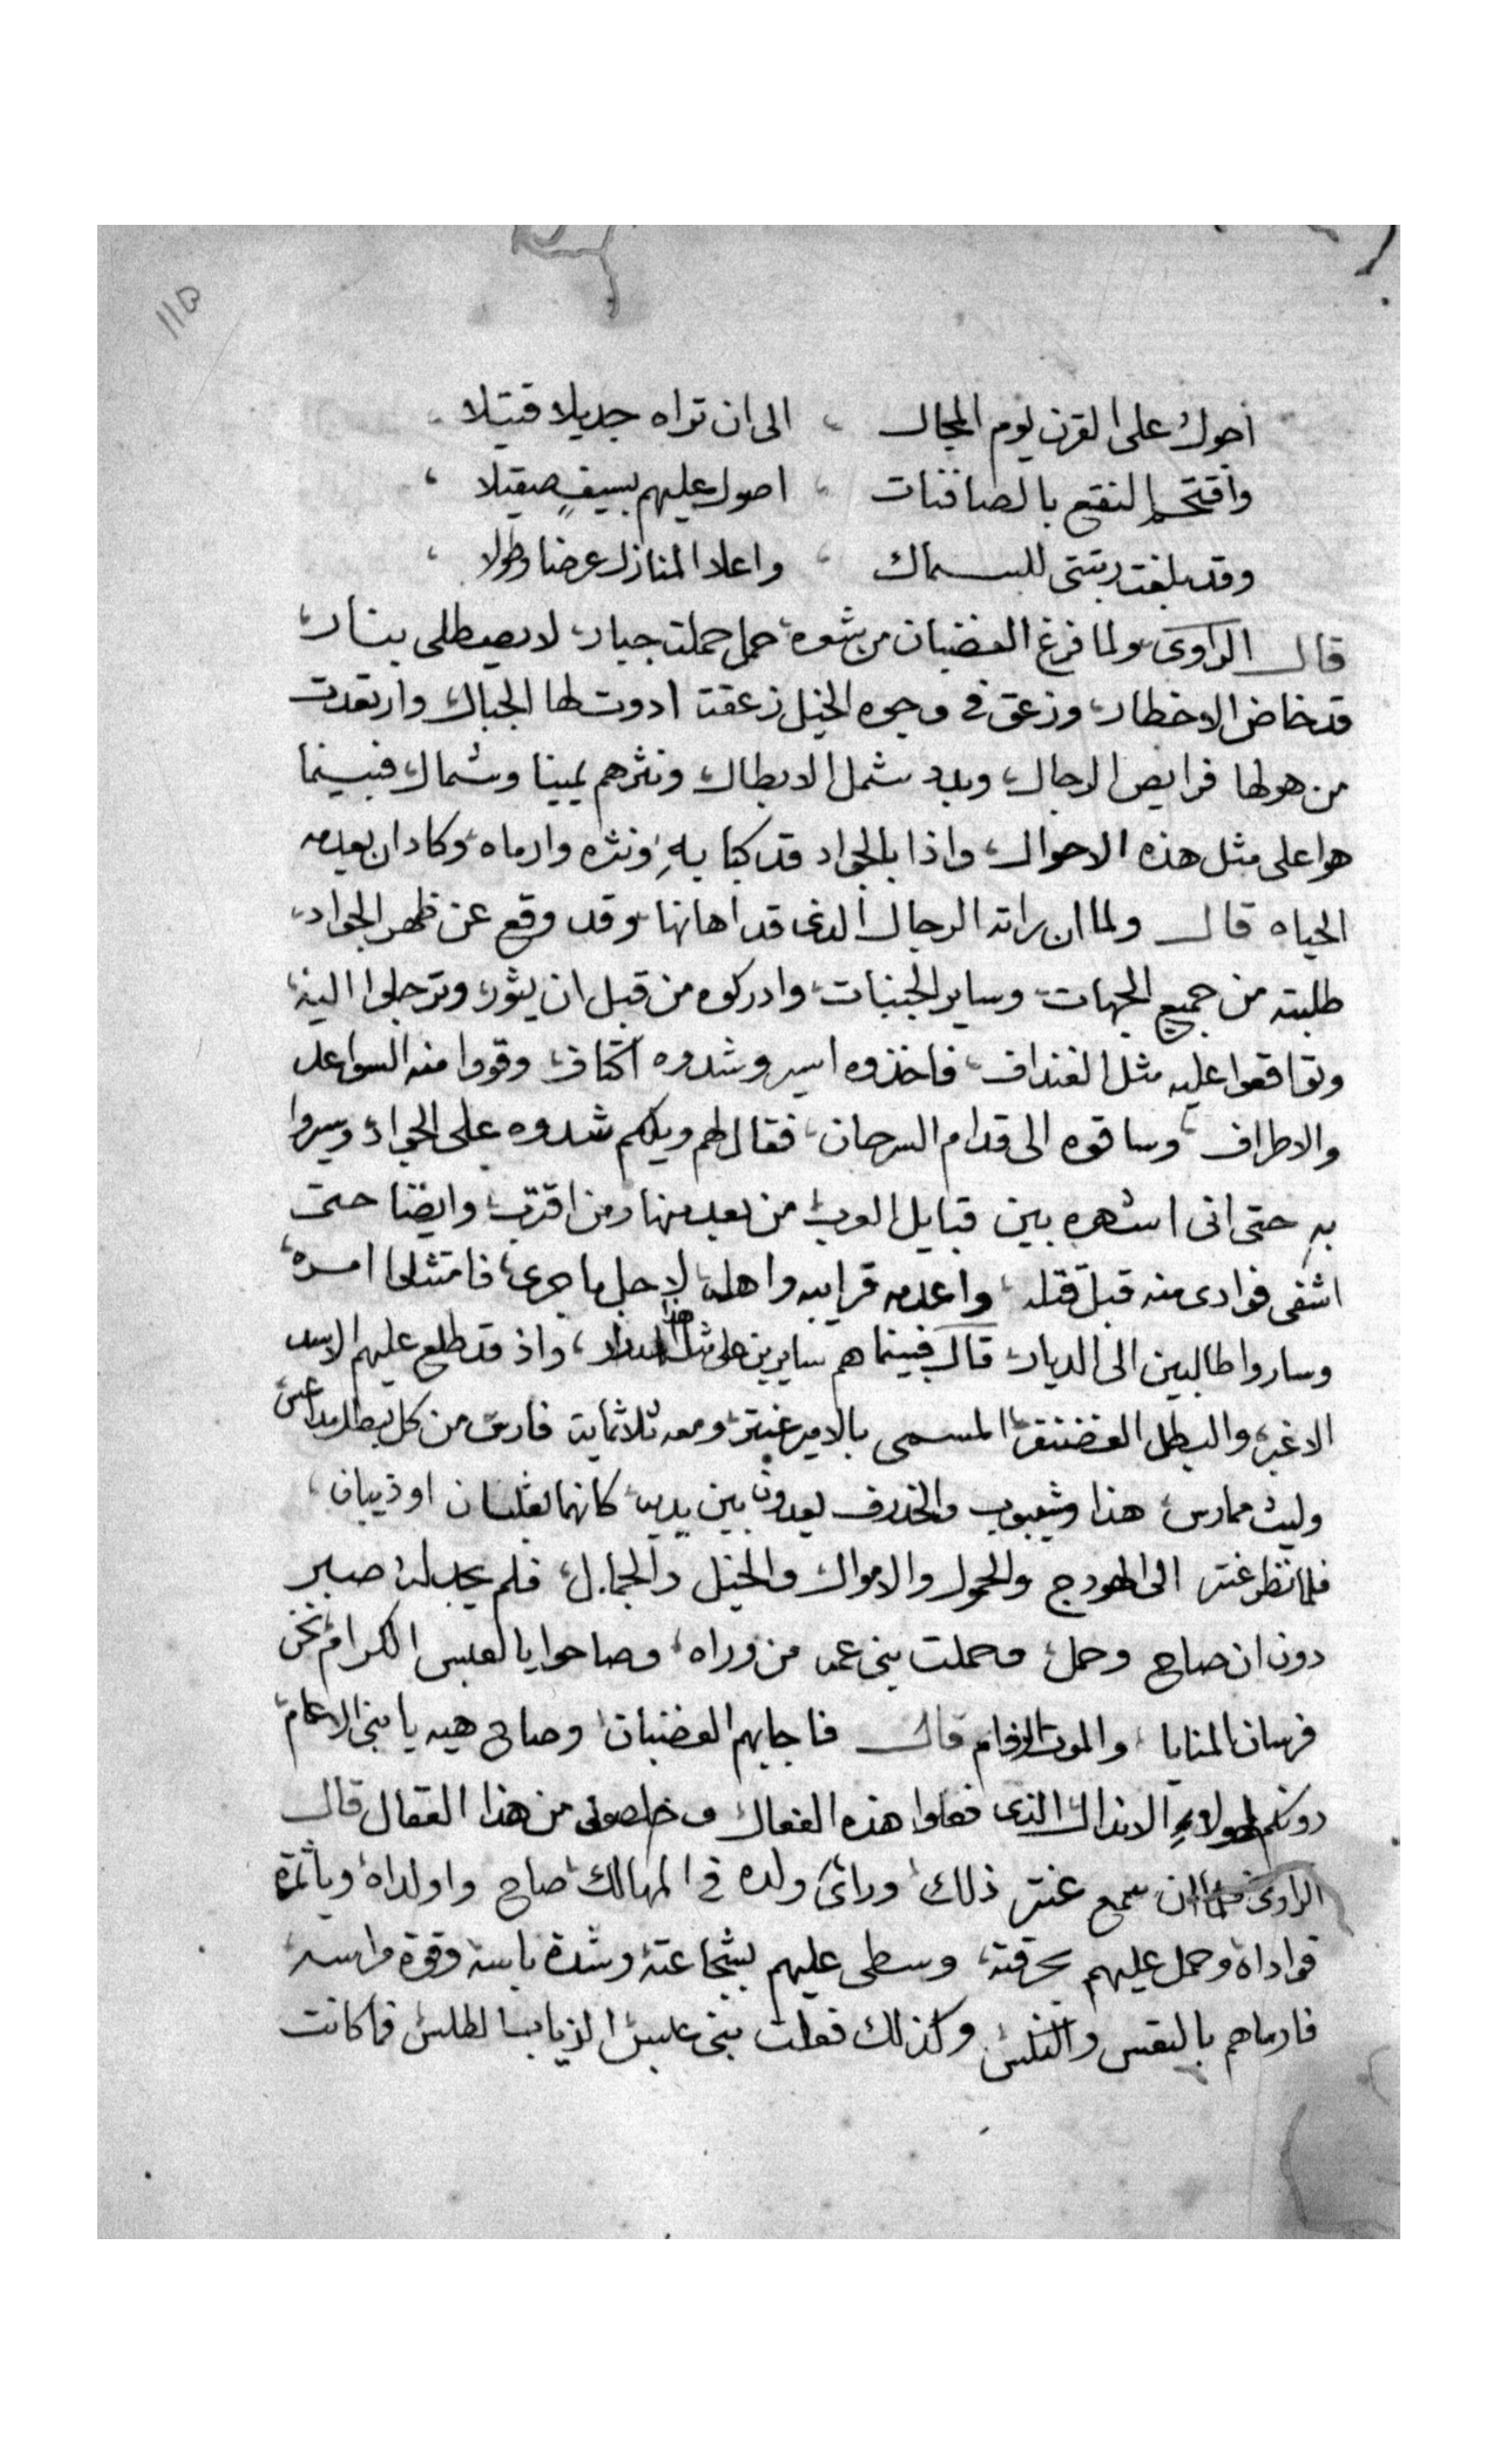 110
اجول على القرن يوم المجال ، الى ان تراه جديلا قتيلا
واقتحم النقع بالصافنات ، اصول عليهم بسيفٍ صقيلا ،
وقد بلغت ربتتى للسماك ، واعلا المنازل عرضا وطولا ،
قال الراوى ولما فرغ الغضبان من شعره، حمل حملت جبار، لا يصطلى بنار،
قد خاض الاخطار، وزعق فى وجوه الخيل زعقت ادوت لها الجبال وارتعدت
من هولها فرايص الرجال، وبدد شمل الابطال، ونثرهم يمينا وشمال، فبينما
هوا على مثل هذه الاحوال، واذا بالجواد قد كبا بهِ، ونثره وارماه، وكاد ان يعدمه
الحياه قال ولما ان راته الرجال الذى قد اهانها وقد وقع عن ظهر الجواد،
طلبته من جميع الجهات، وساير الجنبات، وادركوه من قبل ان يثور، وترجلوا اليه،
وتواقعوا عليه مثل الغنداف، فاخذوه اسير وشدوه اكتاف، وقووا منه السواعد
والاطراف، وساقوه الى قدام السرحان، فقال لهم ويلكم شدوه على الجواد، وسيروا
به حتى انى اشهره بين قبايل العرب، من بعد منها ومن اقترب، وايضا حتى
اشفى فوادى منه قبل قتله، واعدمه قرايبه واهله، لاجل ما جرى، فامتثلوا امره،
وساروا طالبين الى الديار، قال فبينما هم سايرين على مثل هذا ، واذ قد طلع عليهم الاسد
الاغبر، والبطل الغضنفر، المسمى بالامير عنتر، ومعه ثلاثماية فارس من كل بطل مداعس
وليث ممارس، هذا وشيبوب والخذروف يعدون بين يديه، كانهما ثعلبان او ذيبان،
فلما نظر عنتر الى الهودج والحمول والاموال والخيل والجمال، فلم يجد له صبر
دون ان صاح وحمل، وحملت بنى عمه من وراه، وصاحوا يا لعبس الكرام، نحن
فرسان المنايا، والموت الزوام قال فاجابهم الغضبان، وصاح هيه يا بنى الاعمام،
دونكم لهولاءِ الاندال الذى فعلوا هذه الفعال وخلصونى من هذا العقال قال
الراوى فلما ان سمع عنتر ذلك، وراى ولده فى المهالك، صاح واولداه، وياثمرة
فواداه، وحمل عليهم بحرقته، وسطى عليهم بشجاعته، وشدة باسه وقوة مراسه،
فارماهم بالتعس والنكس، وكذلك فعلت بنى عبس، الذياب الطلس، فما كانت